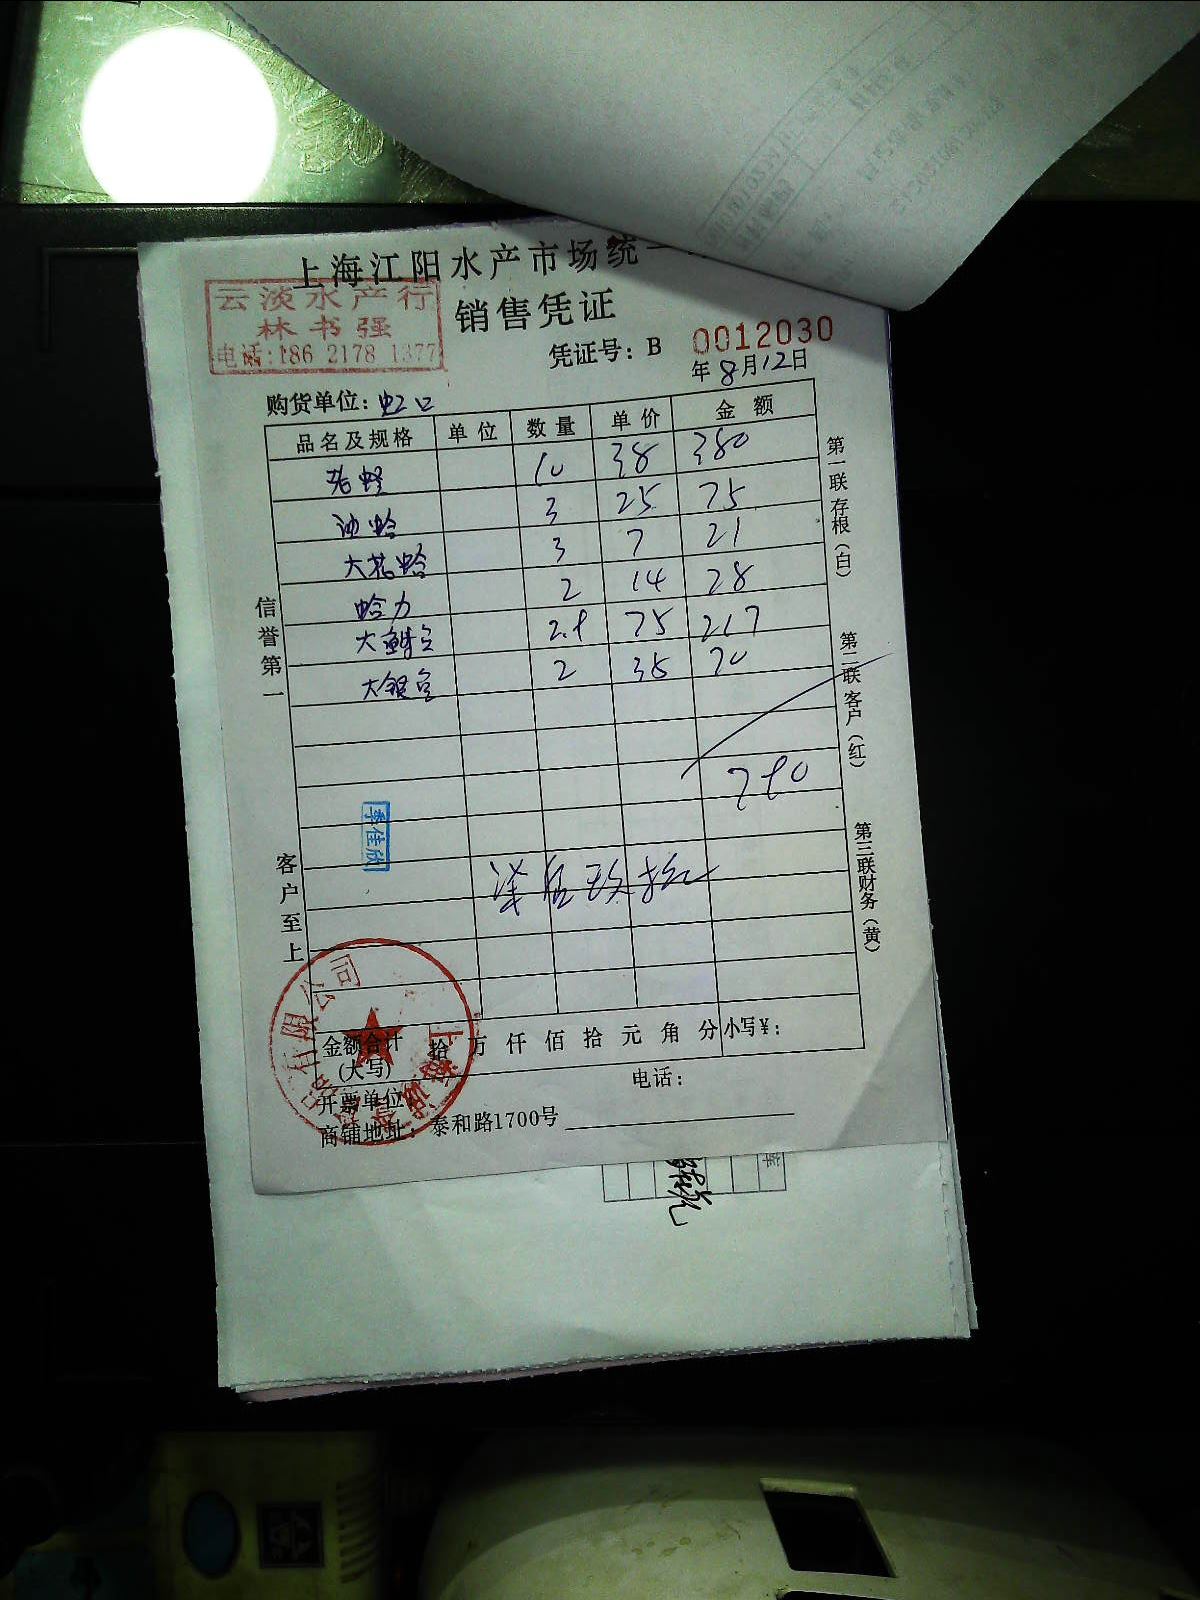 上海江阳水产市场统一
销售凭证
云淡水产行
林书强
电话:186 2178 1377
凭证号：B 0012030
年8月12日
购货单位：虹口
品名及规格 单位 数量 单价 金额
老蛏 10 38 380
油蛤 3 25 75
大花蛤 3 7 21
蛤力 2 14 28
2.9 75 217
2 35 70
790
柒佰玖拾
季佳欣
信誉第一
客户至上
第一联存根（白）
第二联客户（红）
第三联财务（黄）
金额合计 拾 万 仟 佰 拾 元 角 分 小写¥：
(大写)
开票单位： 电话：
商铺地址：泰和路1700号
有限公司